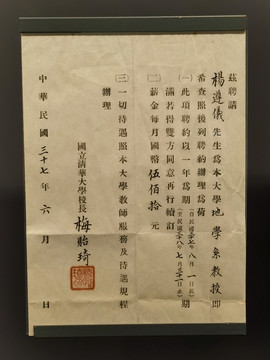 茲聘請
楊遵儀先生為本大學地學系教授即
希查照後列聘約辦理為荷
(一)此項聘約以一年為期(自民國三十七年八月一日起至民國三十八年七月三十一日止)期
滿若得雙方同意再行續訂
(二)薪金每月國幣伍佰拾元
(三)一切待遇照本大學教師服務及待遇規程
辦理
國立清華大學校長梅貽琦
中華民國三十七年六月日